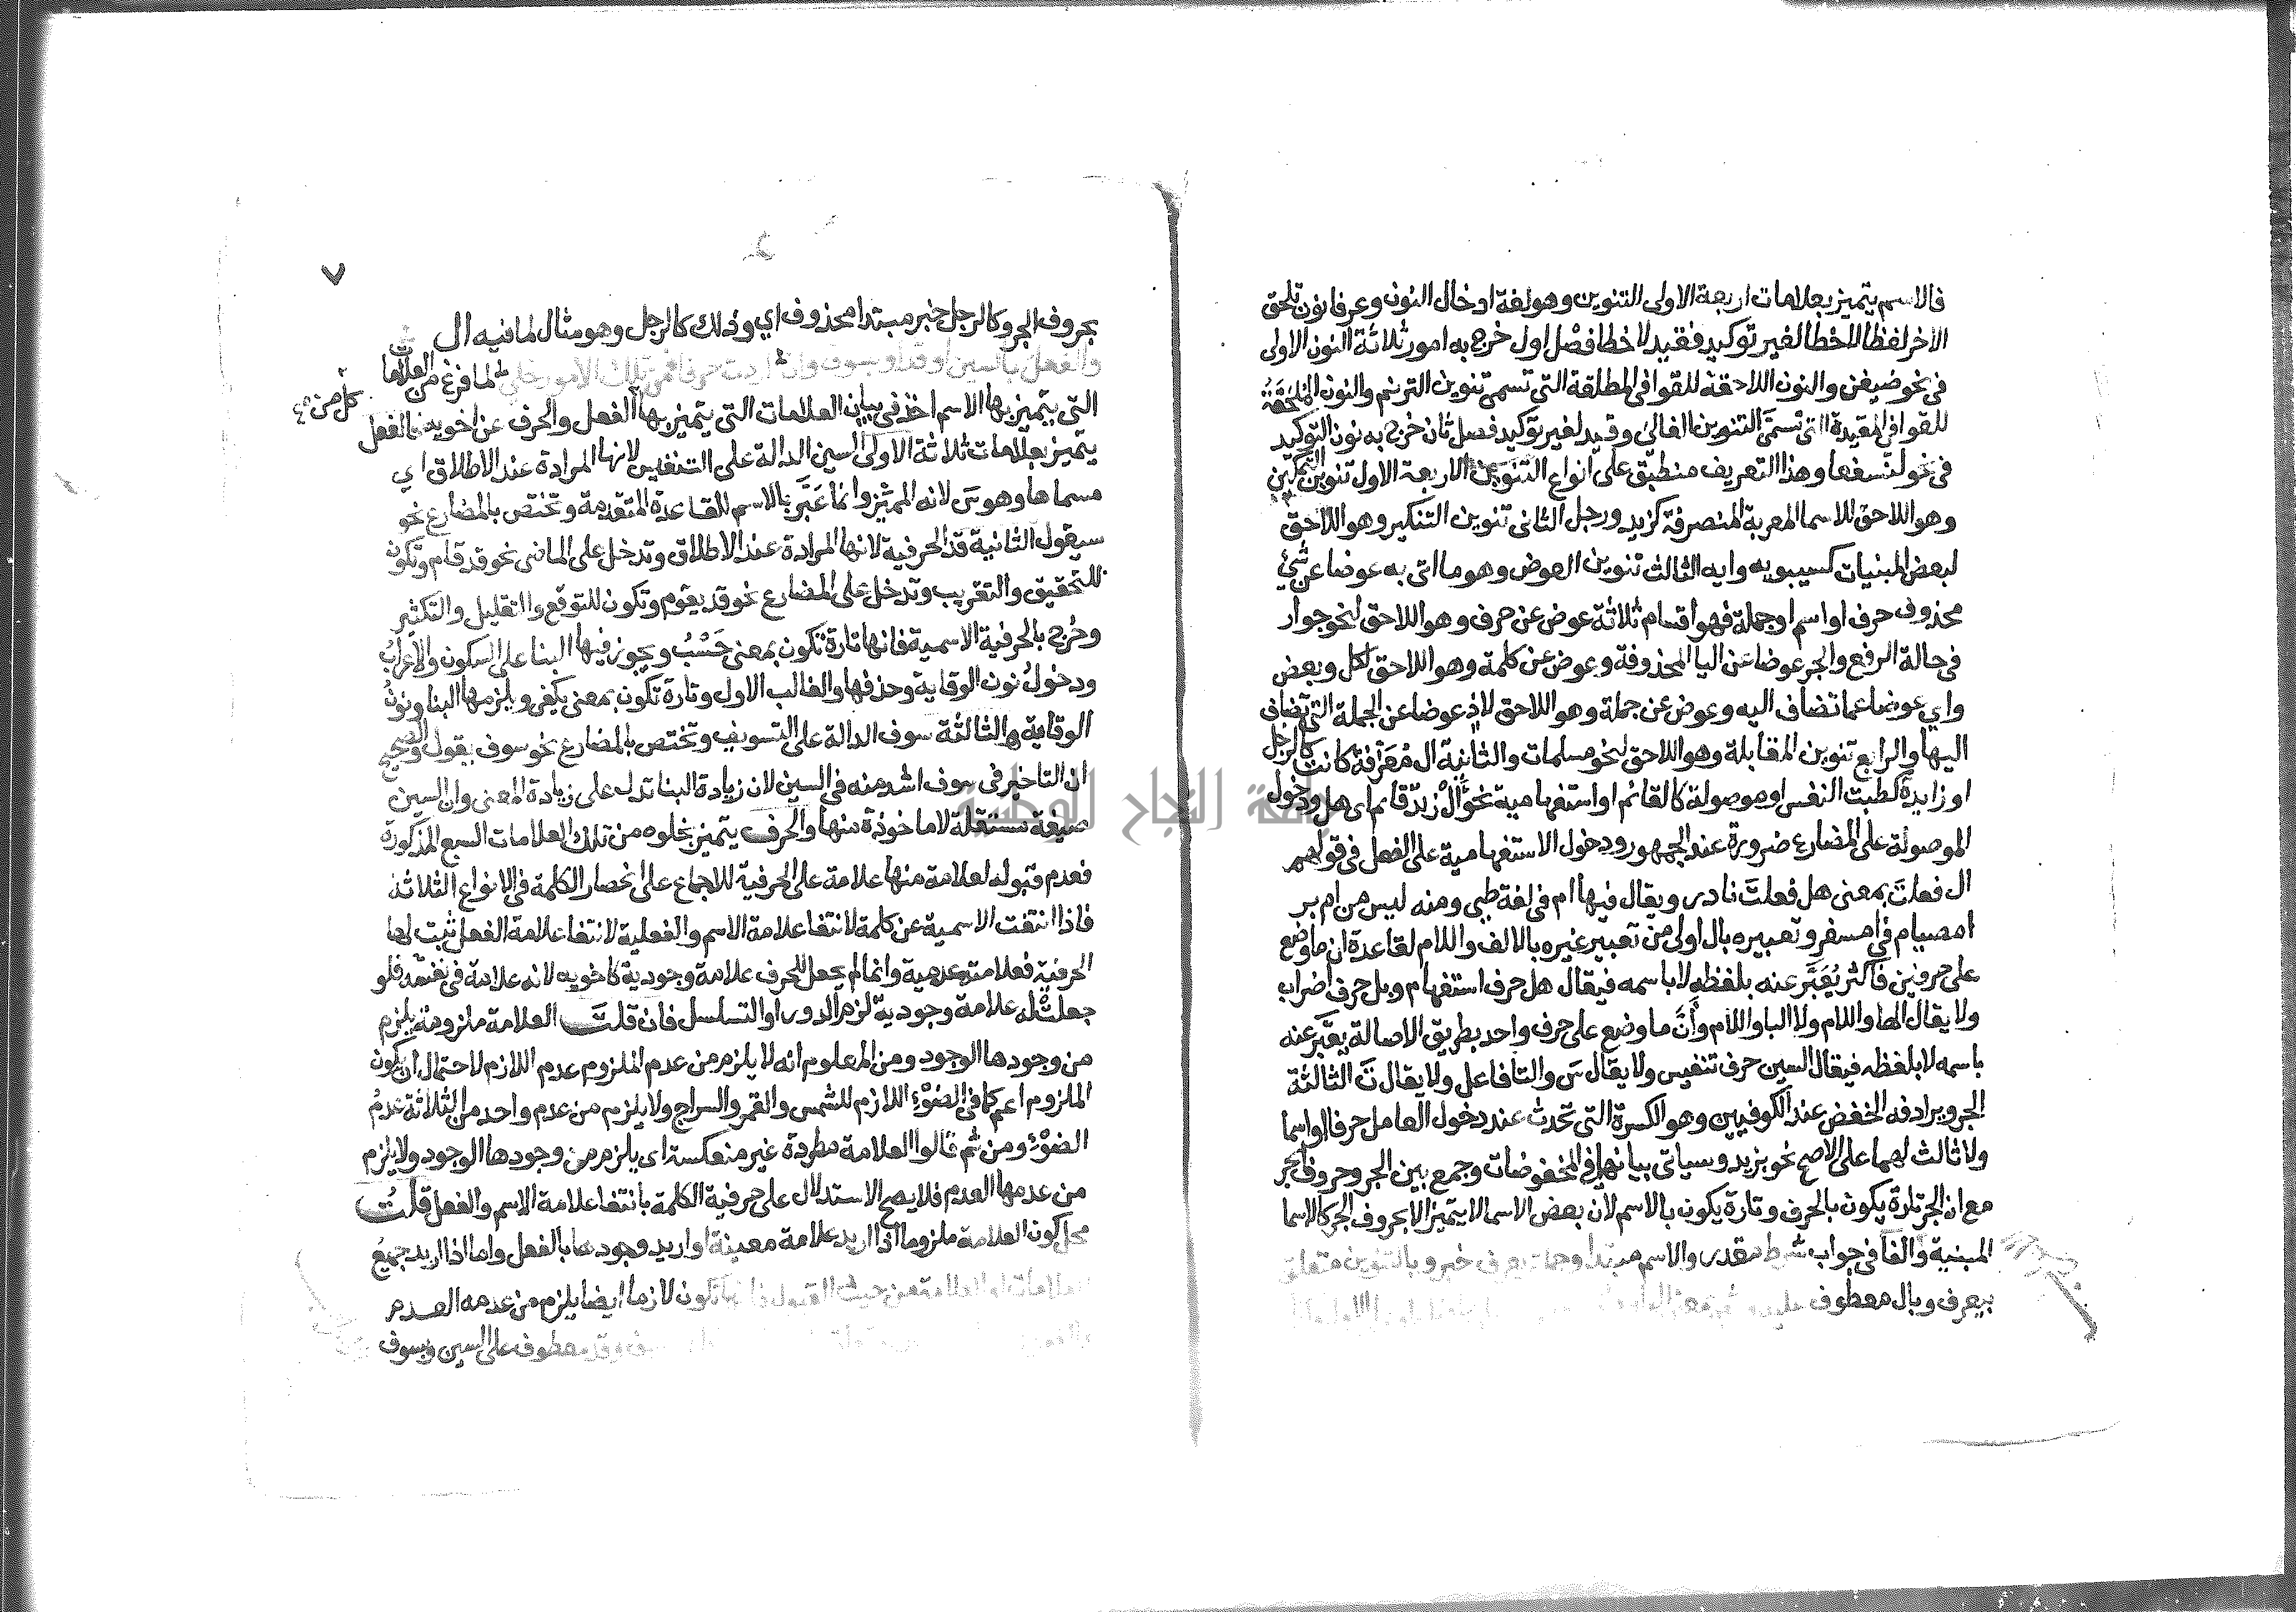 فالاسم يتميز بعلامات اربعة الاولى التنوين وهو لغة ادخال النون وعرفا نون تلحق
الاخر لفظا لا خطا لغير توكيد فقيد لا خطا فصل اول خرج به امور ثلاثة النون الاولى
فى نحو ضيفن والنون اللاحقة للقوافى المطلقة التى تسمى تنوين الترنم والنون الملحقة
للقوافى المقيدة التى تسمى التنوين الغالى وقيد لغير توكيد فصل ثان خرج به نون التوكيد
فى نحو لنسفعا وهذا التعريف منطبق على انواع التنوين الاربعة الاول تنوين التمكين
وهو اللاحق للاسما المعربة المنصرفة كزيد ورجل الثانى تنوين التنكير وهو اللاحق
لبعض المبنيات كسيبويه وايه الثالث تنوين العوض وهو ما اتى به عوضا عن شئ
محذوف حرف او اسم او جملة فهو اقسام ثلاثة عوض عن حرف وهو اللاحق لنحو جوار
فى حالة الرفع والجر عوضا عن اليا المحذوفة وعوض عن كلمة وهو اللاحق لكل وبعض
واي عوضا عما تضاف اليه وعوض عن جملة وهو اللاحق لاذ عوضا عن الجملة التى تضاف
اليها والرابع تنوين المقابلة وهو اللاحق لنحو مسلمات والثانية ال معرفة كانت كالرجل
او زايدة كطبت النفس او موصولة كالقائم او استفهامية نحو ال زيد قائم اى هل ودخول
الموصولة على المضارع ضرورة عند الجمهور ودخول الاستفهامية على الفعل فى قولهم
ال فعلت بمعنى هل فعلت نادر ويقال فيها ام فى لغة طى ومنه ليس من ام بر
امصيام فى امسفر وتعبيره بال اولى من تعبير غيره بالالف واللام لقاعدة ان ما وضع
على حرفين فاكثر يعبر عنه بلفظه لا باسمه فيقال هل حرف استفهام وبل حرف اضراب
ولا يقال الها واللام ولا البا واللام وان ما وضع على حرف واحد بطريق الاصالة يعبر عنه
باسمه لا بلفظه فيقال السين حرف تنفيس ولا يقال س والتا فاعل ولا يقال ت الثالثة
الجر ويرادفه الخفض عند الكوفيين وهو الكسرة التى تحدث عند دخول العامل حرفا او اسما
ولا ثالث لهما على الاصح نحو بزيد وسياتى بيانها فى المخفوضات وجمع بين الجر وحروف الجر
مع ان الجر تارة يكون بالحرف وتارة يكون بالاسم لان بعض الاسما لا يتميز الا بحروف الجر كالاسما
المبنية والفا فى جواب شرط مقدر والاسم مبتدا وجملة يعرف خبر وبالتنوين متعلق
بيعرف وبال معطوف عليه
٧
بحروف الجر وكالرجل خبر مبتدا محذوف اي وذلك كالرجل وهو مثال لما فيه ال
والفعل بالسين او وبسوف وان اردت حرفا فمن تلك الامور لما فرغ من العلامات
التى يتميز بها الاسم اخذ فى بيان العلامات التى يتميز بها الفعل والحرف عن اخويه فالفعل
كل من
يتميز بعلامات ثلاثة الاولى السين الدالة على التنفيس لانها المرادة عند الاطلاق اي
مسماها وهو س لانه المميز وانما عبر بالاسم للقاعدة المتقدمة وتختص بالمضارع نحو
سيقول الثانية قد الحرفية لانها المرادة عند الاطلاق وتدخل على الماضى نحو قد قام وتكون
للتحقيق والتقريب وتدخل على المضارع نحو قد يقوم وتكون للتوقع والتقليل والتكثير
وخرج بالحرفية الاسمية فانها تارة تكون بمعنى حسب ويجوز فيها البنا على السكون والاعراب
ودخول نون الوقاية وحذفها والغالب الاول وتارة تكون بمعنى يكفى ويلزمها البنا ونون
الوقاية والثالثة سوف الدالة على التسويف وتختص بالمضارع نحو سوف يقول والصحيح
ان التاخير فى سوف اشد منه فى السين لان زيادة البنا تدل على زيادة المعنى وان السين
صيغة مستقلة لا ماخوذة منها والحرف يتميز بخلوه من تلك العلامات السبع المذكورة
فعدم قبوله لعلامة منها علامة على الحرفية للاجماع على انحصار الكلمة فى الانواع الثلاثة
فاذا انتفت الاسمية عن كلمة لانتفا علامة الاسم والفعلية لانتفا علامة الفعل ثبت لها
الحرفية فعلامته عدمية وانما لم يجعل للحرف علامة وجودية كاخويه لانه علامة فى نفسه فلو
جعلت له علامة وجودية لزم الدور او التسلسل فان قلت العلامة ملزومة يلزم
من وجودها الوجود ومن المعلوم انه لا يلزم من عدم الملزوم عدم اللازم لاحتمال ان يكون
الملزوم اعم كما فى الضوء اللازم للشمس والقمر والسراج ولا يلزم من عدم واحد من الثلاثة عدم
الضوء ومن ثم قالوا العلامة مطردة غير منعكسة اى يلزم من وجودها الوجود ولا يلزم
من عدمها العدم فلا يصح الاستدلال على حرفية الكلمة بانتفا علامة الاسم والفعل قلت
محل كون العلامة ملزوما اذا اريد علامة معينة او اريد وجودها بالفعل واما اذا اريد جميع
العلامات او العلامة من حيث القبول تكون لازما ايضا يلزم من عدمه العدم
وقد معطوف على السين وبسوف
جامعة النجاح الوطنية